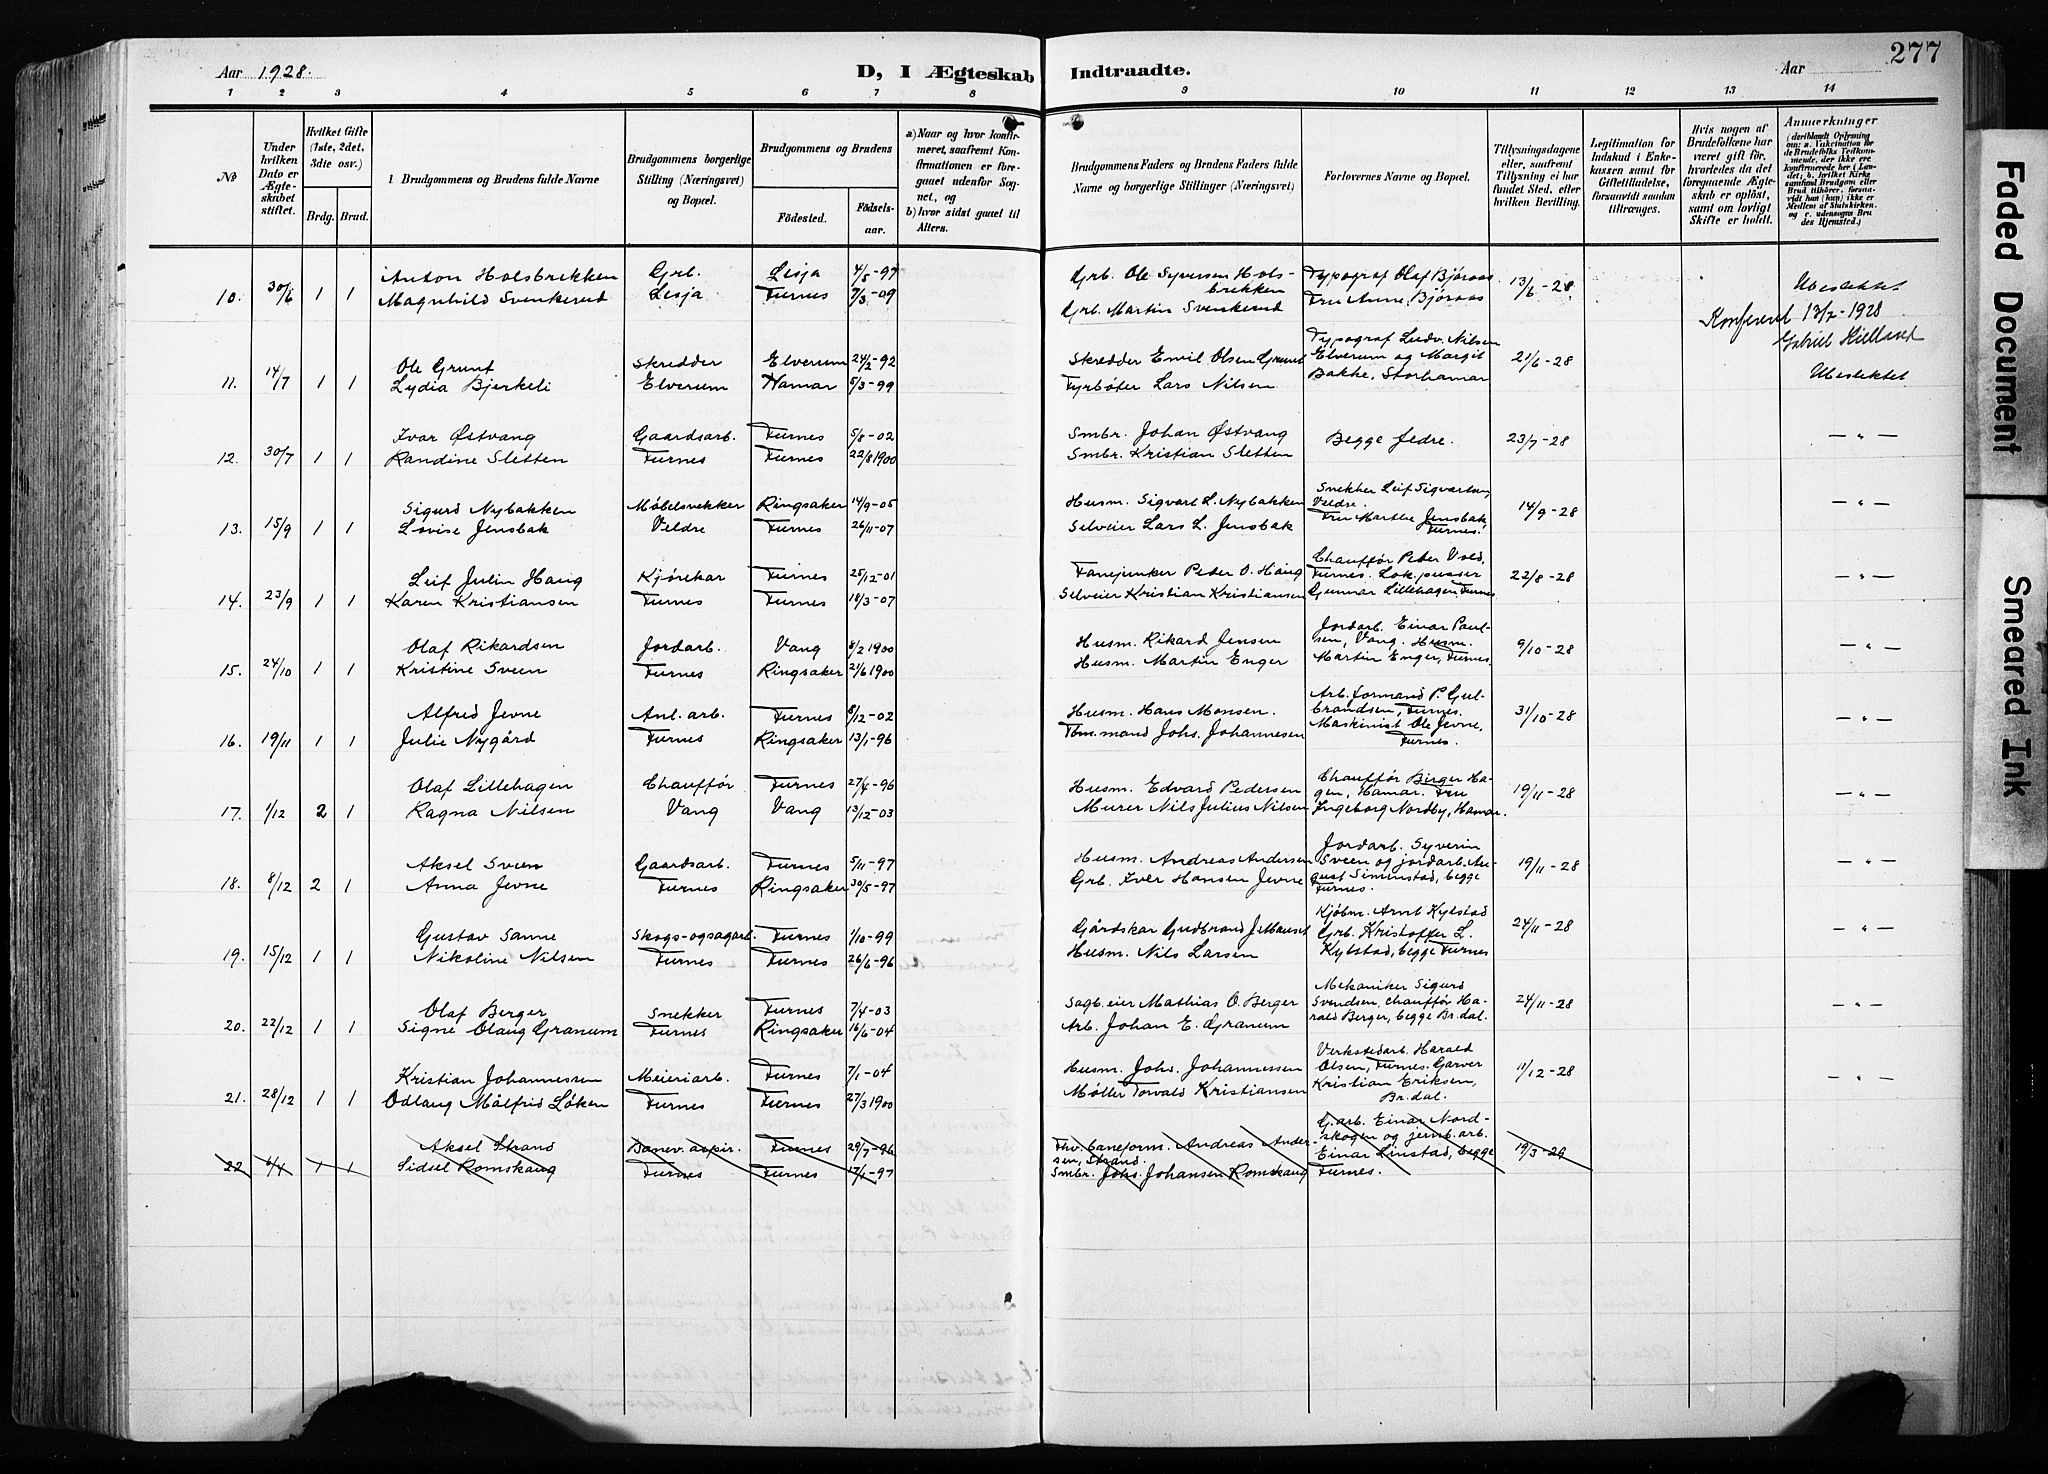 277
Aar 1928.
D, I Ægteskab Indtraadte.
Aar
1 2 3 4 5 6 7 8 9 10 11 12 13 14
No
Under hvilken Dato er Ægteskabet stiftet.
Hvilket Gifte (1ste, 2det, 3die osv.)
Brdg. Brud.
Brudgommens og Brudens fulde Navne
Brudgommens borgerlige Stilling (Næringsvei) og Bopæl.
Brudgommens og Brudens
Fødested.
Fødselsaar.
a) Naar og hvor konfirmeret, saafremt Konfirmationen er foregaaet udenfor Sognet, og
b) hvor sidst gaaet til Alters.
Brudgommens Faders og Brudens Faders fulde Navne og borgerlige Stillinger (Næringsvei)
Forlovernes Navne og Bopæl.
Tillysningsdagene eller, saafremt Tillysning ei har fundet Sted, efter hvilken Bevilling.
Legitimation for Indskud i Enkekassen samt for Giftetilladelse, forsaavidt saadan tiltrænges.
Hvis nogen af Brudefolkene har været gift før, hvorledes da det foregaaende Ægteskab er opløst, samt om lovligt Skifte er holdt.
Anmerkninger
Anton Holsbrekken Grb. Lesja 4/5-97 Grb. Ole Syversen Holsbrekken Typograf Olaf Bjøraas
10. 30/6 1 1 Magnhild Svenkerud Lesja Furnes 7/3-09 Grb. Martin Svenkerud Fru Anne Bjøraas 13/6-28 Ubeslektet
Konfereret 13/7-1928
Gabriel Kielland
Ole Grunt Skredder Elverum 24/2-92 Skredder Emil Olsen Grunt Typograf Ludv. Nilsen
11. 14/7 1 1 Lydia Bjerkeli Elverum Hamar 5/3-99 Fyrbøter Lars Nilsen Elverum og Margit Bakke, Storhamar 21/6-28 Ubeslektet
Ivar Østvang Gaardsarb. Furnes 5/8-02 Smbr. Johan Østvang Begge fedre. 23/7-28 — " —
12. 30/7 1 1 Randine Sletten Furnes Furnes 22/8 1900 Smbr. Kristian Sletten
Sigurd Nybakken Møbelsnekker Ringsaker 14/9-05 Husm. Sigvart L. Nybakken Snekker Leif Sigvartsen, Veldre. 14/9-28 — " —
13. 15/9 1 1 Lovise Jensbak Veldre Furnes 26/11-07 Selveier Lars L. Jensbak Fru Marthe Jensbak, Furnes.
Leif Julin Haug Kjørekar Furnes 25/12-01 Fanejunker Peder O. Haug Chauffør Peder Vold, Furnes. Lok.pusser 22/8-28 — " —
14. 23/9 1 1 Karen Kristiansen Furnes Furnes 18/3-07 Selveier Kristian Kristiansen Gunnar Lillehagen, Furnes
Olaf Rikardsen Jordarb. Vang 8/2 1900 Husm. Rikard Jensen Jordarb. Einar Paulsen, Vang. Husm. 9/10-28 — " —
15. 24/10 1 1 Kristine Sveen Furnes Ringsaker 21/6 1900 Husm. Martin Enger Martin Enger, Furnes.
Alfred Jevne Anl. arb. Furnes 8/12-02 Husm. Hans Monsen. Arb.formand P. Gulbrandsen, Furnes. 31/10-28 — " —
16. 19/11 1 1 Julie Nygård Furnes Ringsaker 13/1-96 Tøm.mand Johs. Johannesen Maskinist Ole Jevne, Furnes.
Olaf Lillehagen Chauffør Furnes 27/4-96 Husm. Edvard Pedersen Chauffør Birger Hagen, Hamar. Fru 19/11-28 — " —
17. 1/12 2 1 Ragna Nilsen Vang Vang 13/12-03 Murer Nils Julius Nilsen Ingeborg Nordby, Hamar.
Aksel Sveen Gaardsarb. Furnes 5/11-97 Husm. Andreas Andersen Jordarb. Syverin Sveen og jordarb. August 19/11-28 — " —
18. 8/12 2 1 Anna Jevne Furnes Ringsaker 30/5-97 Grb. Iver Hansen Jevne Simenstad, begge Furnes.
Gustav Sanne Skogs- og sagarb. Furnes 1/10-99 Gårdskar Gudbrand J. Kjøbm. Arnt Kylstad 24/11-28 — " —
19. 15/12 1 1 Nikoline Nilsen Furnes Furnes 26/6-96 Husm. Nils Larsen Grb. Kristoffer L. Kylstad, begge Furnes
Olaf Berger Snekker Furnes 7/4-03 Sagb.eier Mathias O. Berger Mekaniker Sigurd Svendsen, chauffør Harald 24/11-28 — " —
20. 22/12 1 1 Signe Olaug Granum Furnes Ringsaker 16/6-04 Arb. Johan E. Granum Berger, begge Br.dal.
Kristian Johannessen Meieriarb. Furnes 7/1-04 Husm. Johs. Johannessen Verkstedarb. Harald Olsen, Furnes. Garver 11/12-28 — " —
21. 28/12 1 1 Odlaug Målfrid Løken Furnes Furnes 27/3 1900 Møller Torvald Kristiansen Kristian Eriksen, Br.dal.
Aksel Strand Banev. aspir. Furnes 29/7-96 Fhv. baneform. Andreas Andersen, Strand. G.arb. Einar Nordskogen og jernb.arb. 19/3-29
22 6/4 1 1 Sidsel Romskaug Furnes Furnes 17/1-97 Smbr. Johs. Johansen Romskaug Einar Linstad, begge Furnes.
Faded Document
Smeared Ink